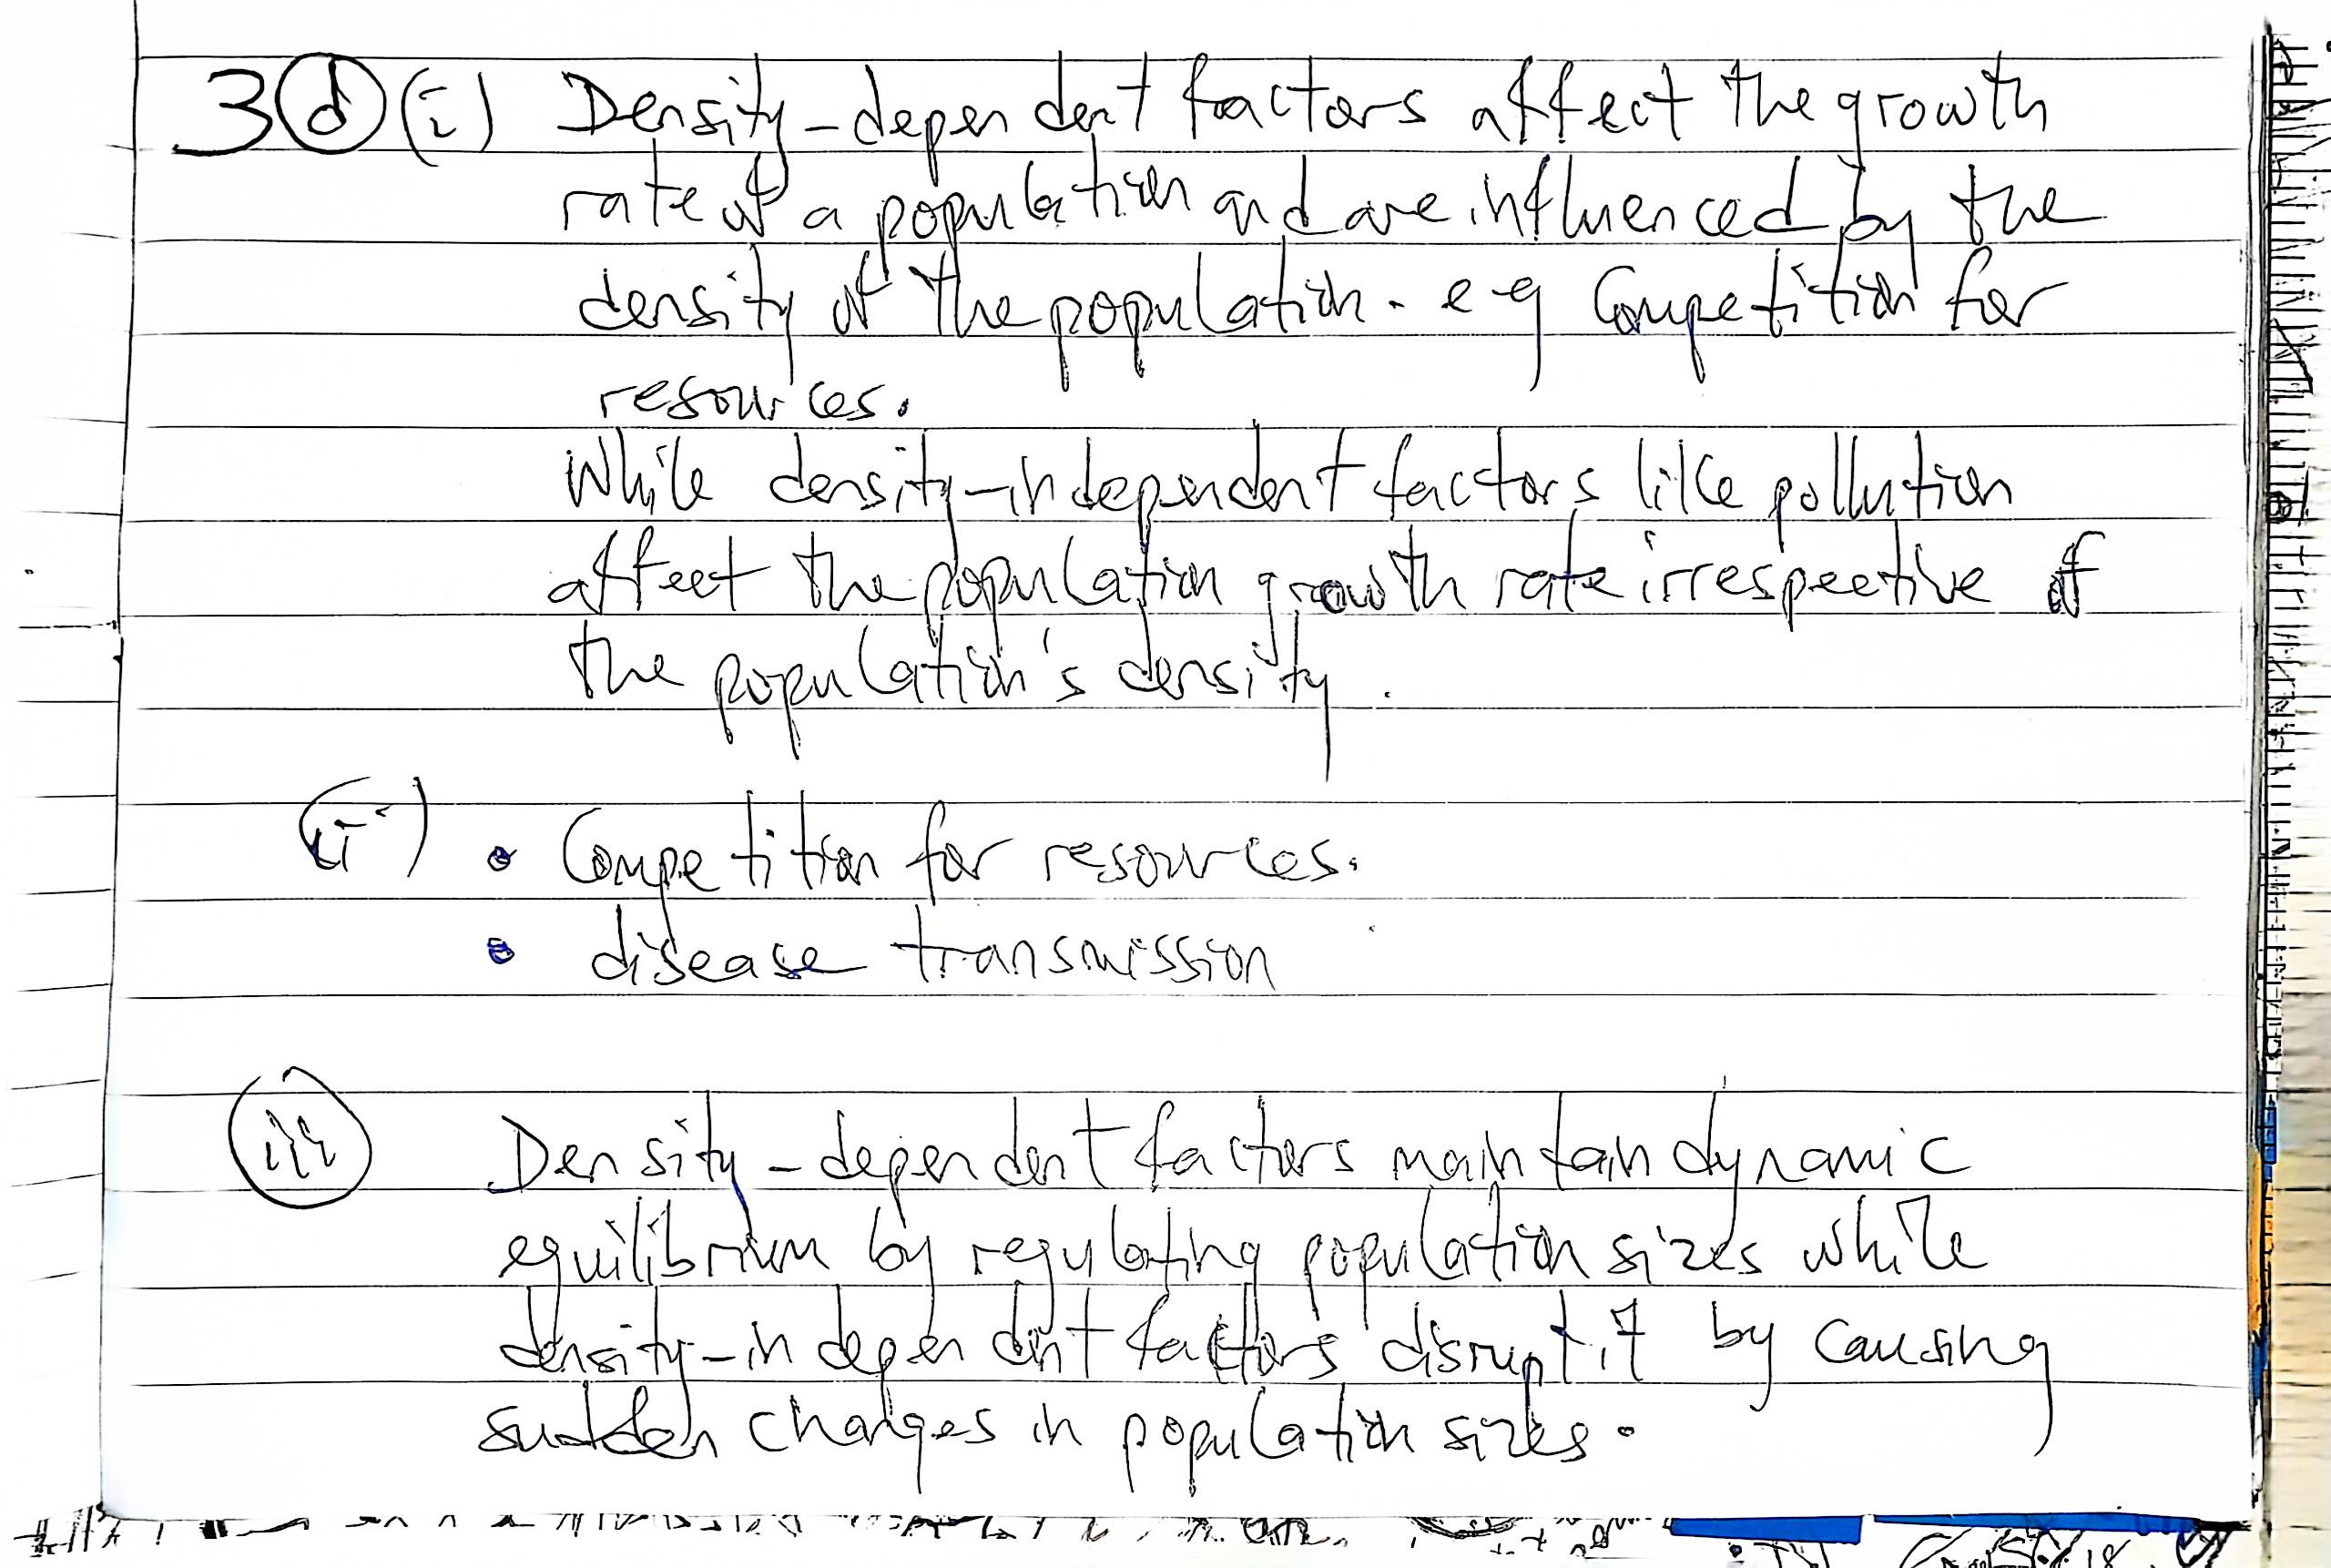 3(d) (i) Density-dependent factors affect the growth
rate of a population and are influenced by the
density of the population. e.g Competition for
resources.
While density-independent factors like pollution
affect the population growth rate irrespective of
the population's density.
(ii) • Competition for resources.
• disease transmission
(iii) Density-dependent factors maintain dynamic
equilibrium by regulating population sizes while
density-independent factors disrupt it by causing
sudden changes in population sizes.